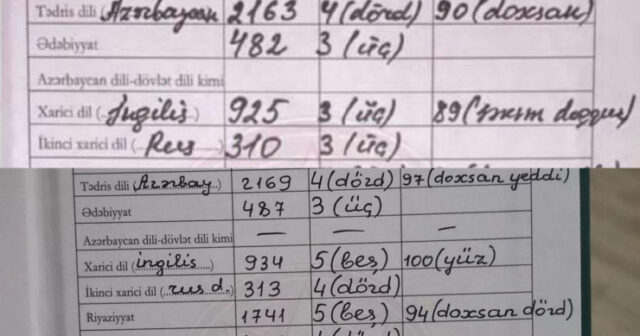 Tədris dili (Azərbaycan 2163 4 (dörd) 90 (doxsan)
Ədəbiyyat 482 3 (üç)
Azərbaycan dili-dövlət dili kimi
Xarici dil (İngilis) 925 3 (üç) 89 (səksən doqquz)
İkinci xarici dil (Rus 310 3 (üç)
Tədris dili (Azərbay) 2169 4 (dörd) 97 (doxsan yeddi)
Ədəbiyyat 487 3 (üç)
Azərbaycan dili-dövlət dili kimi — — —
Xarici dil (ingilis) 934 5 (beş) 100 (yüz)
İkinci xarici dil (rus d.) 313 4 (dörd)
Riyaziyyat 1741 5 (beş) 94 (doxsan dörd)